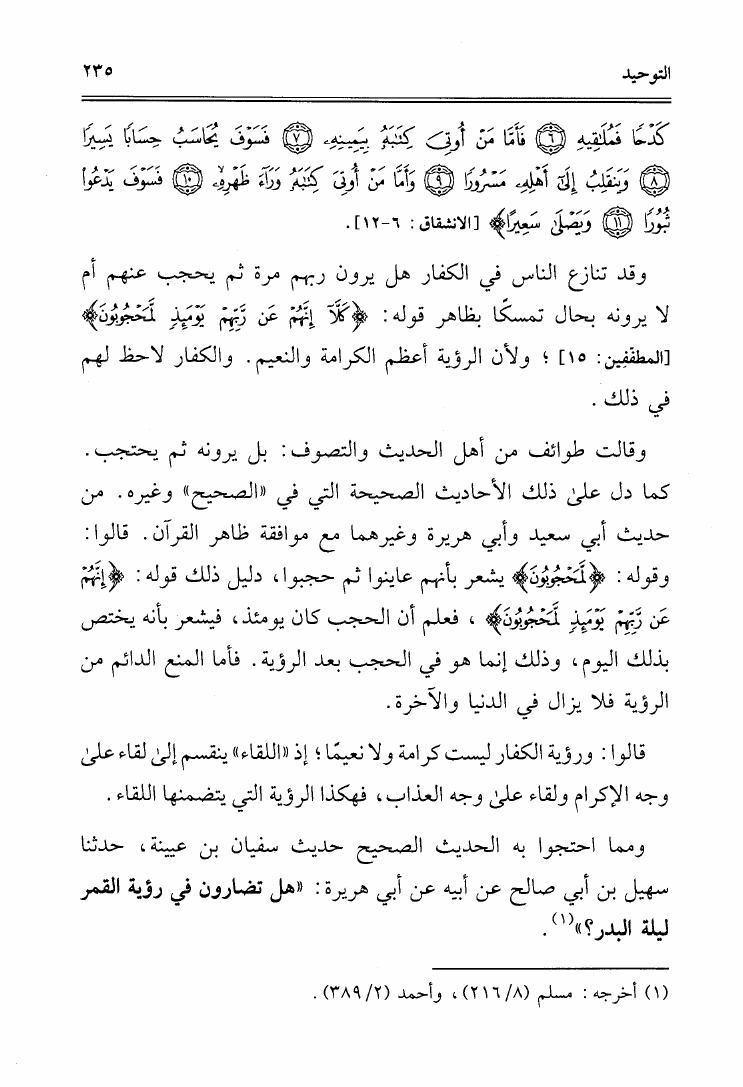 التوحيد ٢٣٥
كَدْحًا فَمُلَٰقِيهِ ﴿٦﴾ فَأَمَّا مَنْ أُوتِىَ كِتَٰبَهُۥ بِيَمِينِهِۦ ﴿٧﴾ فَسَوْفَ يُحَاسَبُ حِسَابًا يَسِيرًا
﴿٨﴾ وَيَنقَلِبُ إِلَىٰٓ أَهْلِهِۦ مَسْرُورًا ﴿٩﴾ وَأَمَّا مَنْ أُوتِىَ كِتَٰبَهُۥ وَرَآءَ ظَهْرِهِۦ ﴿١٠﴾ فَسَوْفَ يَدْعُوا۟
ثُبُورًا ﴿١١﴾ وَيَصْلَىٰ سَعِيرًا﴾ [الانشقاق: ٦-١٢].
وقد تنازع الناس في الكفار هل يرون ربهم مرة ثم يحجب عنهم أم
لا يرونه بحال تمسكًا بظاهر قوله: ﴿كَلَّآ إِنَّهُمْ عَن رَّبِّهِمْ يَوْمَئِذٍ لَّمَحْجُوبُونَ﴾
[المطففين: ١٥] ؛ ولأن الرؤية أعظم الكرامة والنعيم. والكفار لاحظ لهم
في ذلك .
وقالت طوائف من أهل الحديث والتصوف: بل يرونه ثم يحتجب.
كما دل علىٰ ذلك الأحاديث الصحيحة التي في «الصحيح» وغيره. من
حديث أبي سعيد وأبي هريرة وغيرهما مع موافقة ظاهر القرآن. قالوا:
وقوله: ﴿لَّمَحْجُوبُونَ﴾ يشعر بأنهم عاينوا ثم حجبوا، دليل ذلك قوله: ﴿إِنَّهُمْ
عَن رَّبِّهِمْ يَوْمَئِذٍ لَّمَحْجُوبُونَ﴾ ، فعلم أن الحجب كان يومئذ، فيشعر بأنه يختص
بذلك اليوم، وذلك إنما هو في الحجب بعد الرؤية. فأما المنع الدائم من
الرؤية فلا يزال في الدنيا والآخرة.
قالوا: ورؤية الكفار ليست كرامة ولا نعيمًا؛ إذ «اللقاء» ينقسم إلىٰ لقاء علىٰ
وجه الإكرام ولقاء علىٰ وجه العذاب، فهكذا الرؤية التي يتضمنها اللقاء.
ومما احتجوا به الحديث الصحيح حديث سفيان بن عيينة، حدثنا
سهيل بن أبي صالح عن أبيه عن أبي هريرة: «هل تضارون في رؤية القمر
ليلة البدر؟»(١).
(١) أخرجه: مسلم (٢١٦/٨)، وأحمد (٣٨٩/٢).